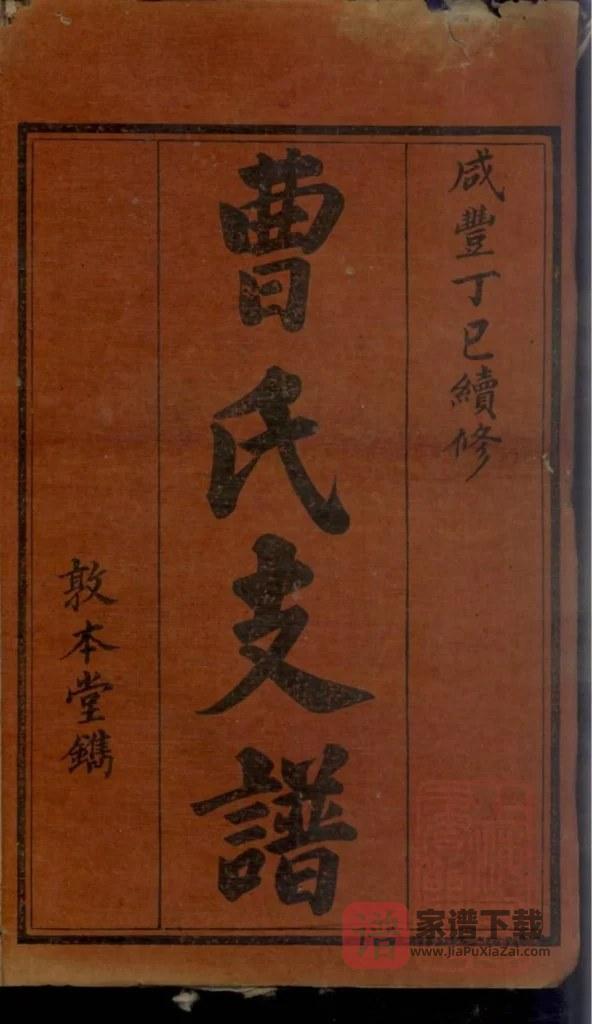 咸豐丁巳續修
曹氏支譜
敦本堂鐫
谱
家谱下载
www.jiaPuXiaZai.com